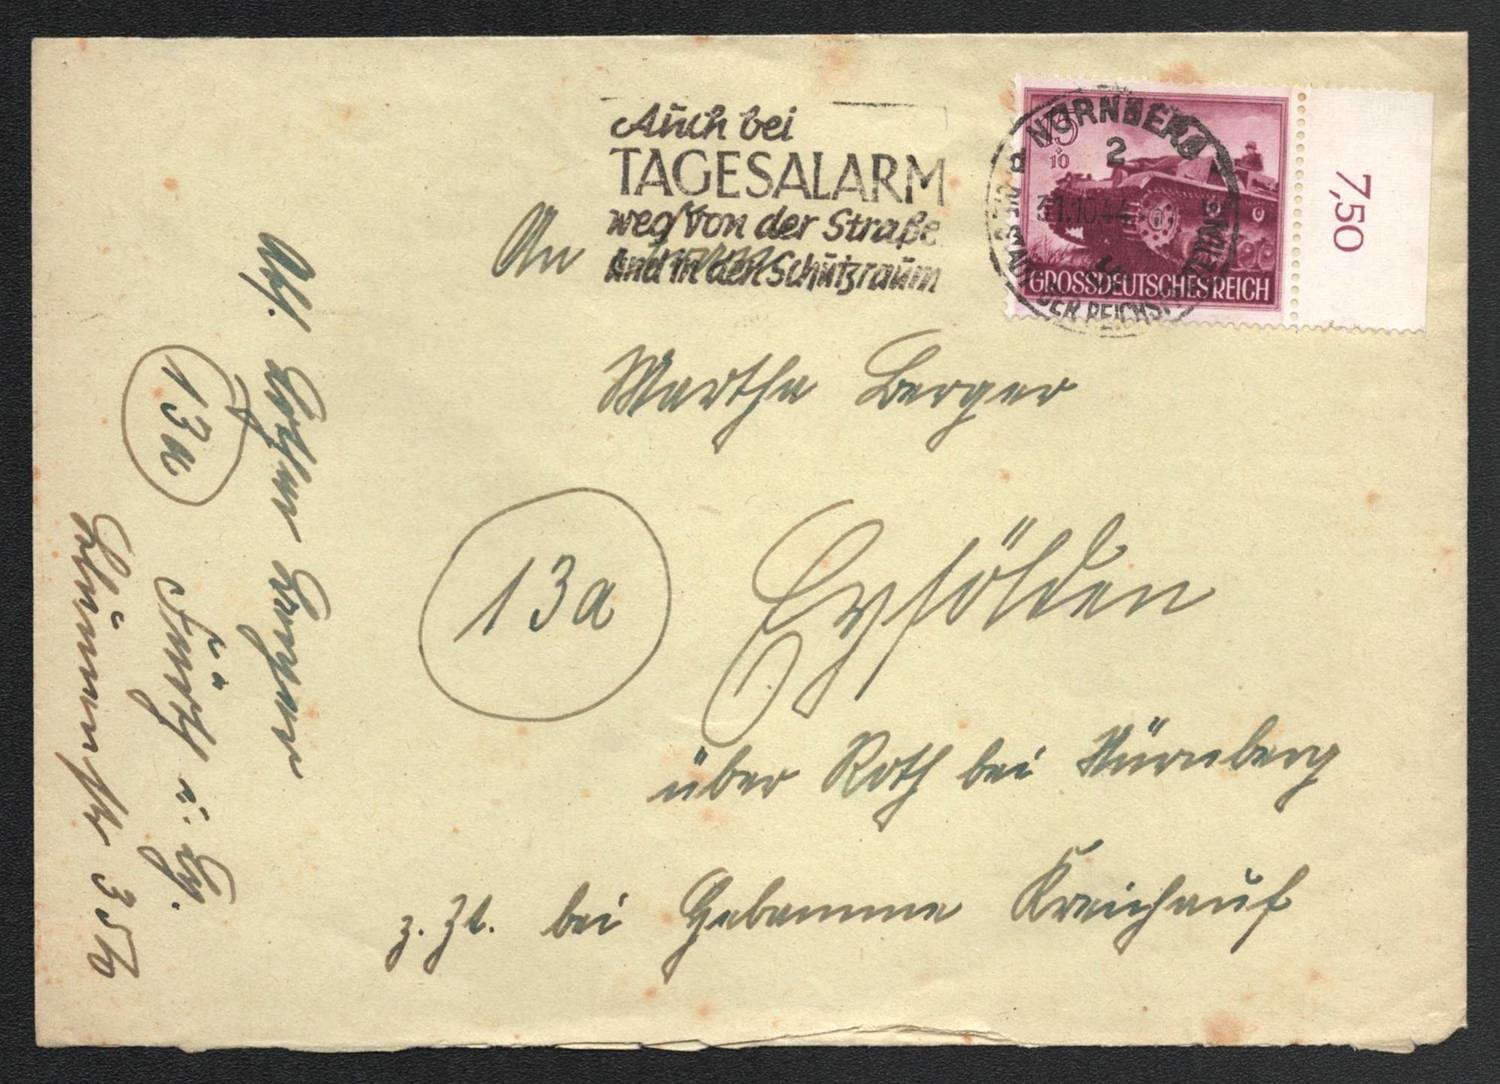 Auch bei
TAGESALARM
weg von der Straße
und in den Schutzraum
NÜRNBERG
2
31.10.44
STADT DER REICHS
15
10
GROSSDEUTSCHES REICH
7,50
An
Martha Berger
13a
Eysölden
über Roth bei Nürnberg
z. Zt. bei Hebamme Kreichauf
Abs.
13a
Fürth i. By.
35